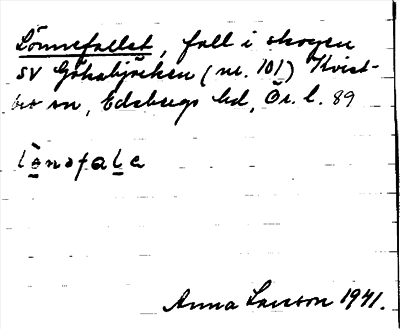 Lönnefallet, fall i skogen
SV Göksbjörken (nr. 101) Kvist-
bro sn, Edsbergs hd, Ör. l. 89
lönəfalə
Anna Larsson 1941.